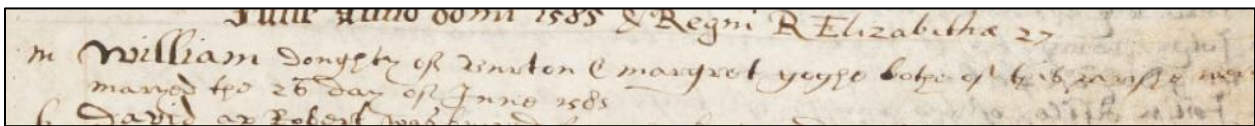 Julie Anno domi 1585 & Regni R Elizabethæ 27
m William Doughty of Burton & margret yoghe bothe of this parishe wer
maryed the 26 day of June 1585
b David ap Robert was